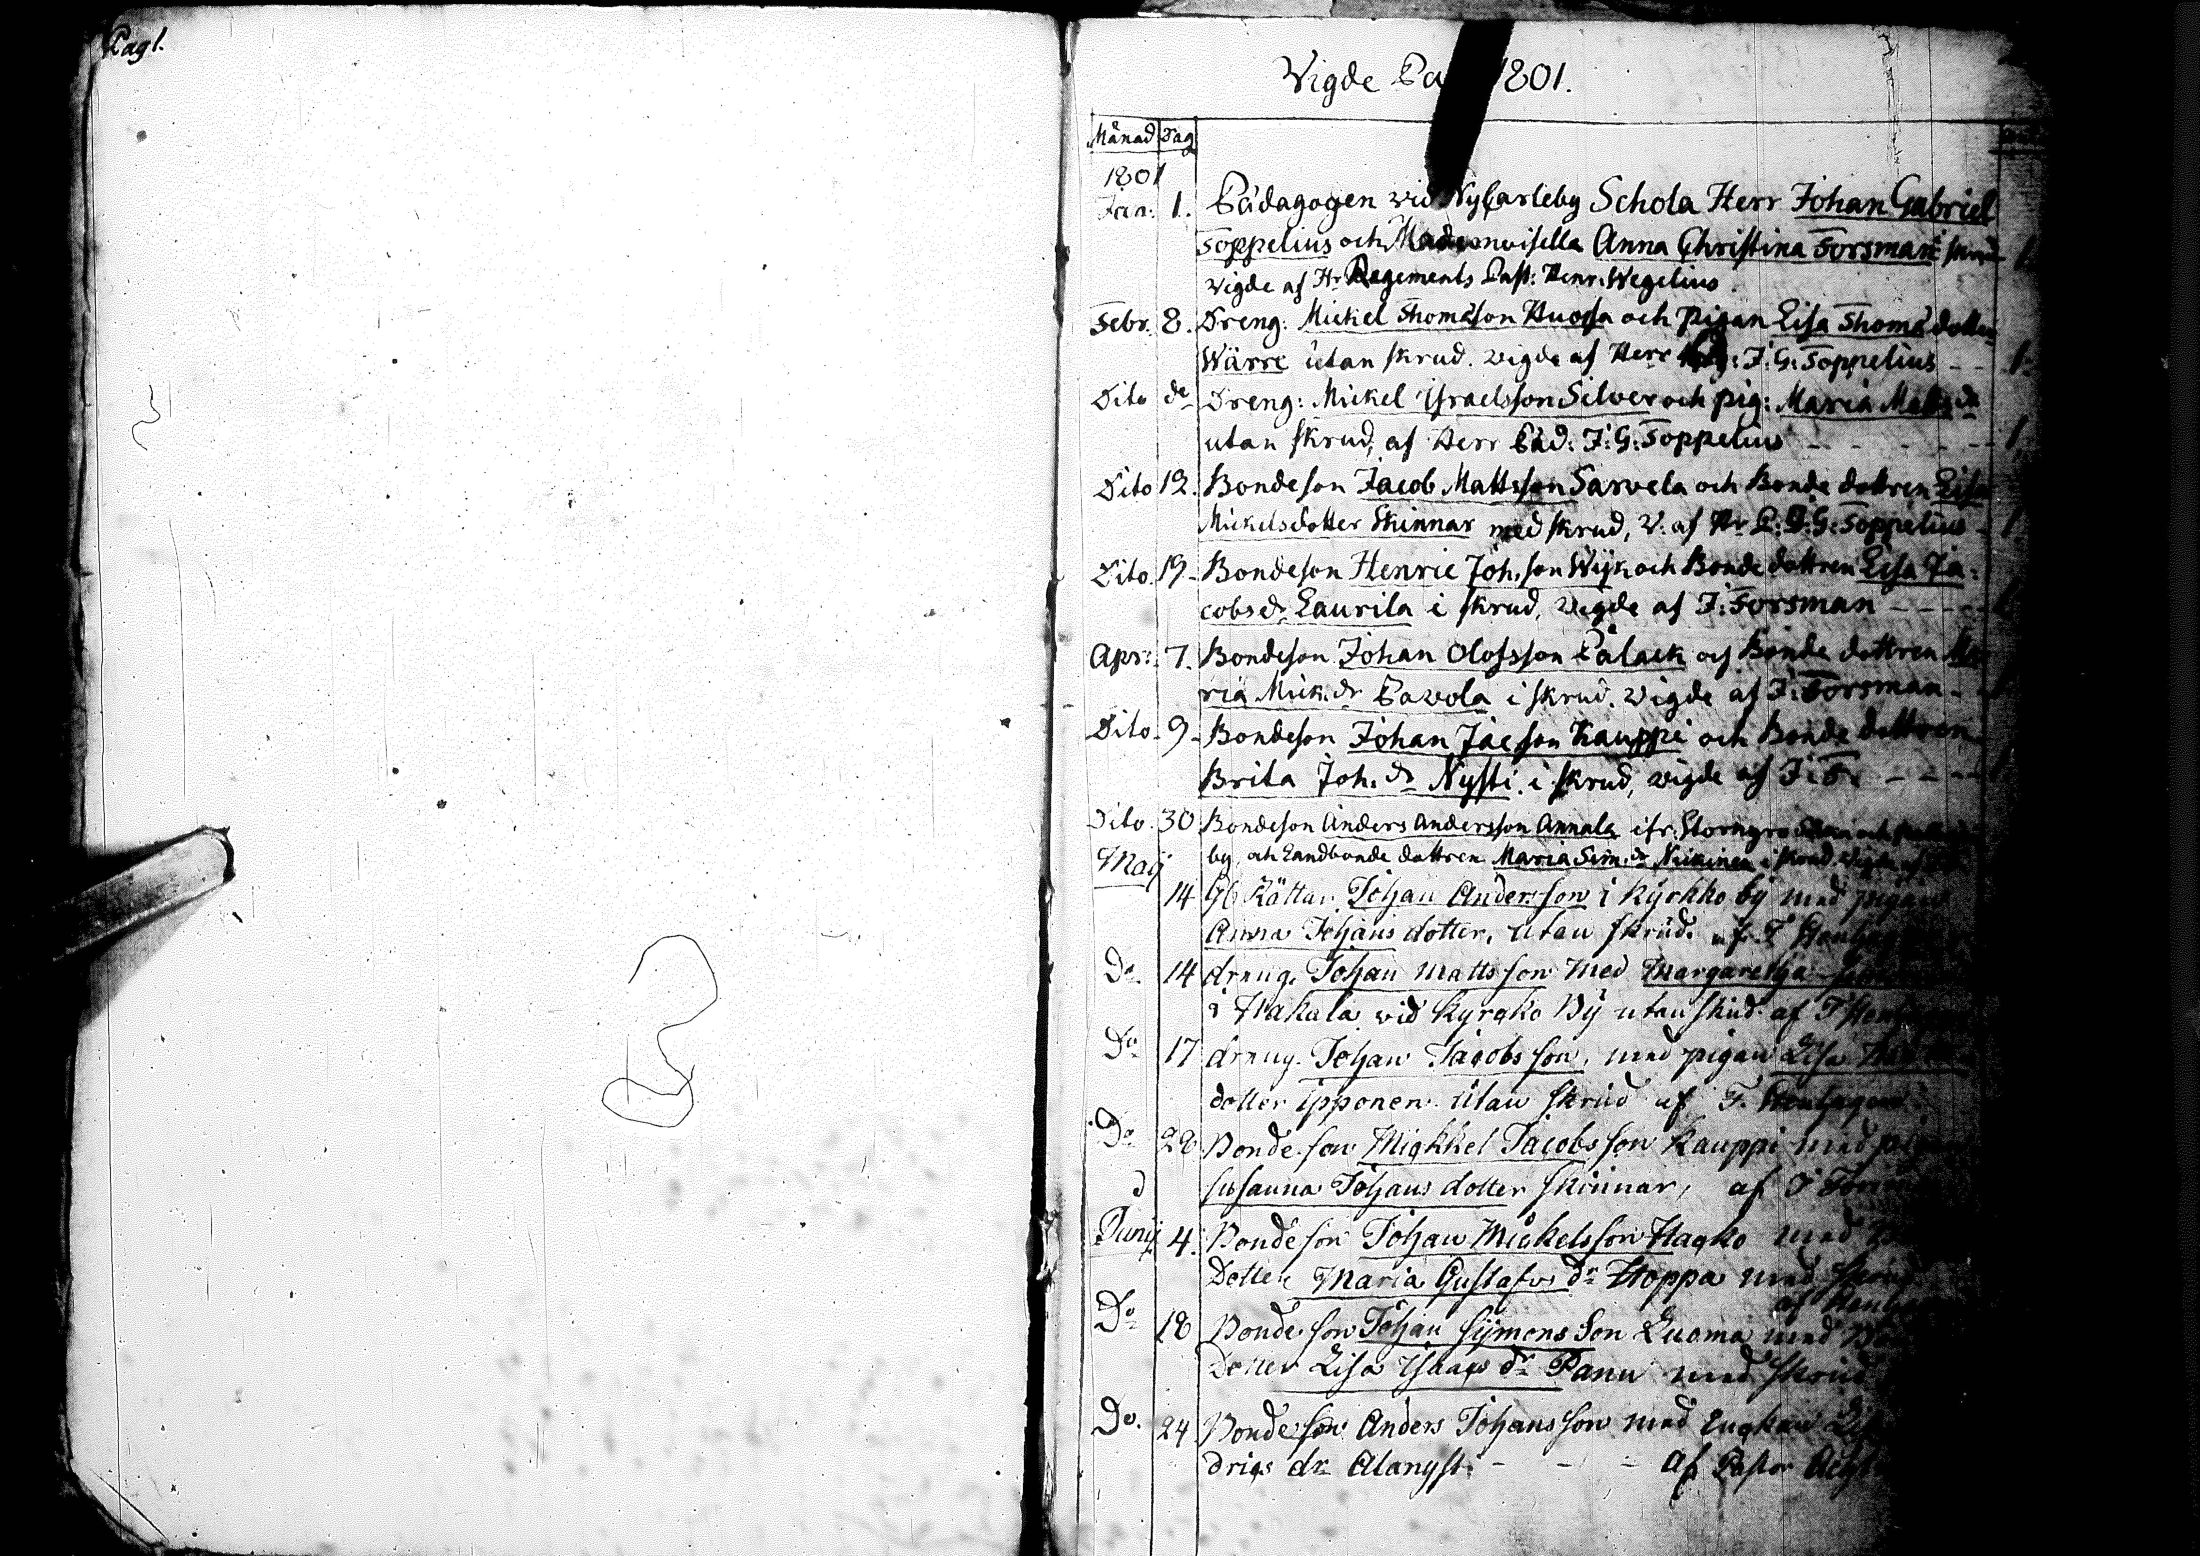 Pag 1.
Vigde Pa 1801.
Månad Dag
1801
Jan: 1. Pädagogen vid NyCarleby Schola Herr Johan Gabriel
Toppelius och Mademoisella Anna Christina Forsman i skrud
vigde af Hr Regements Past: Henr: Wegelius
Febr. 8. Dreng: Mickel Thomasson Huossa och pigan Lisa Thomædotter
Wärre utan skrud. vigde af Herr J: G: Toppelius - - 1.
Dito de Dreng: Mickel Israelsson Silver och pig: Maria Matts dr
utan skrud, af Herr Päd: J: G: Toppelius - - - - 1.
Dito 12. Bondeson Jacob Mattsson Sarvela och Bonde dottren Lisa
Mickelsdotter Skinnar med skrud, V. af Hr P: J: G: Toppelius - 1
Dito. 19 - Bondeson Henric Joh. son Wijk och Bonde dottren Lisa Ja:
cobs dr Laurila i skrud, vigde af J: Forsman - - - -
Apr: 7. Bondeson Johan Olofsson Pålack och Bonde dottren Ma
ria Mick. dr Pavola i skrud. vigde af J: Forsman -
Dito. 9 - Bondeson Johan Jacson Kauppi och Bonde dottren
Brita Joh. dr Nysti i skrud, vigde af J: F. - - - -
Dito. 30 Bondeson Anders Andersson Annala ifr. Storkyro Socken och
by, och Landbonde dottren Maria Sim. dr i skrud, vigde af
Maij
14 Johan Andersson i Kyrkko by med pigan
Anna Johans dotter, utan skrud. af J
Do 14 dreng. Johan Mattsson med Margaretha
i Hakala vid Kyrcko By utan skrud af J
Do 17 dreng. Johan Jacobsson, med pigan Lisa
dotter ipponen utan skrud af J.
Do 28 Bonde son Mickkel Jacobsson Kauppi med
susanna Johans dotter skinnar, af J
Junij 4. Bonde son Johan Mickelsson Hacko med
Dotter Maria Gustafs dr Hoppa med skrud
af
Do 18 Bonde son Johan Symons Son Luoma med
Dotter Lisa Isaacs dr Panu med skrud
Do. 24 Bonde son Anders Johansson med Enckan
drics dr Alanyst: - - - af Pastor